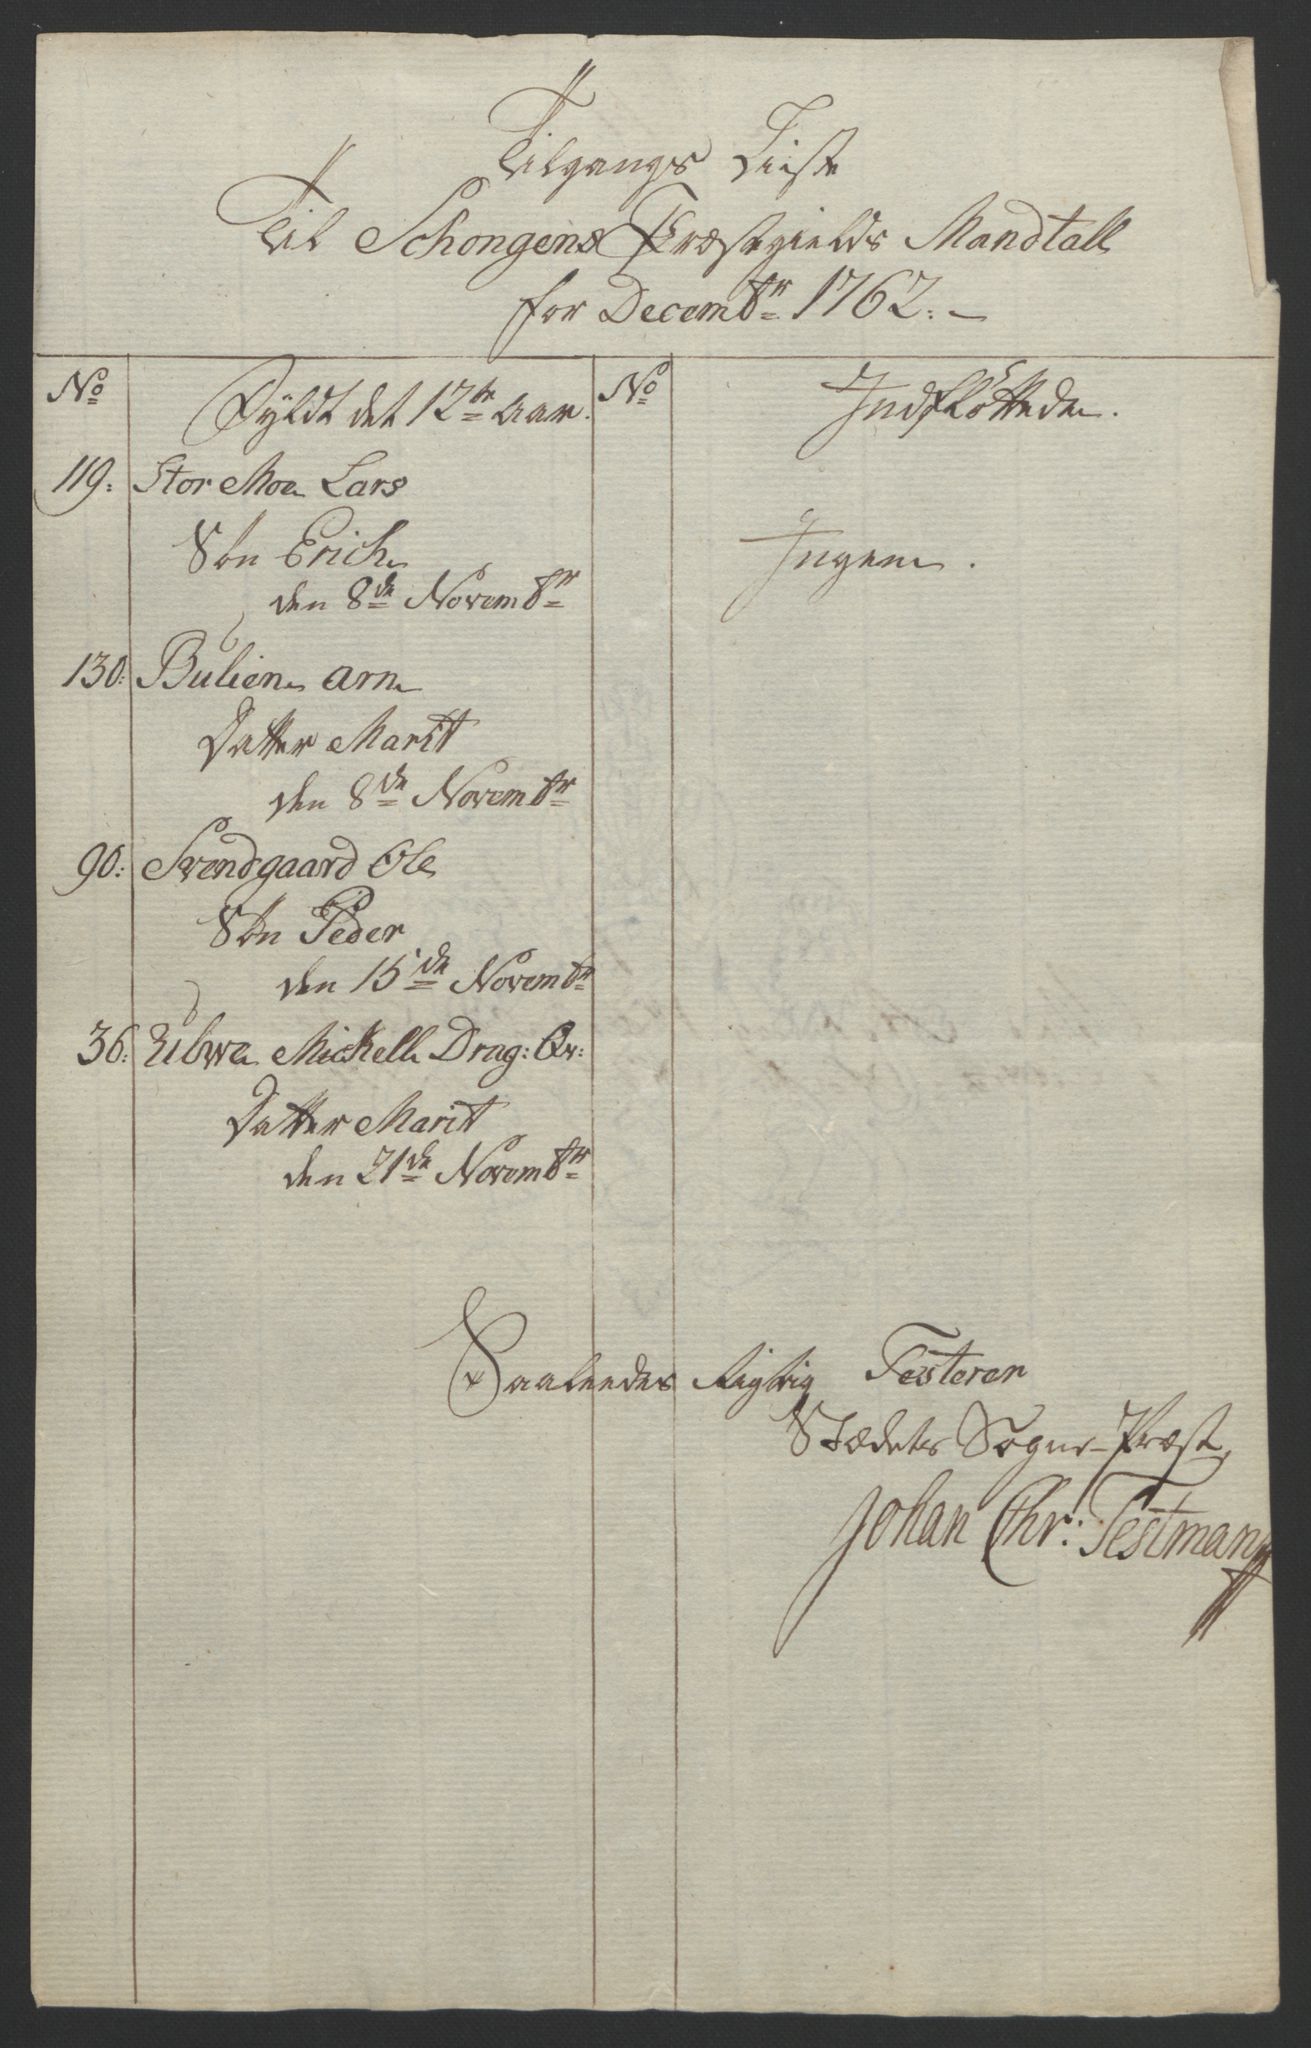 Tilgangs Liste
Til Schongens Præstegields Mandtall
for Decembr 1762.
No Fyldt det 12te Aar. No Indfløttede.
119: Stor Moe Lars
Søn Erich Ingen.
den 8de Novembr
130: Bulien Arn
Datter Marit
den 8de Novembr
90: Svendgaard Ole
Søn Peder
den 15de Novembr
36: Ulwe Mickell Drag: Qv:
Datter Marit
den 21de Novembr
Saaleedes Rigtig Testerer
Stædets Sogne-Præst
Johan Chr: Testman